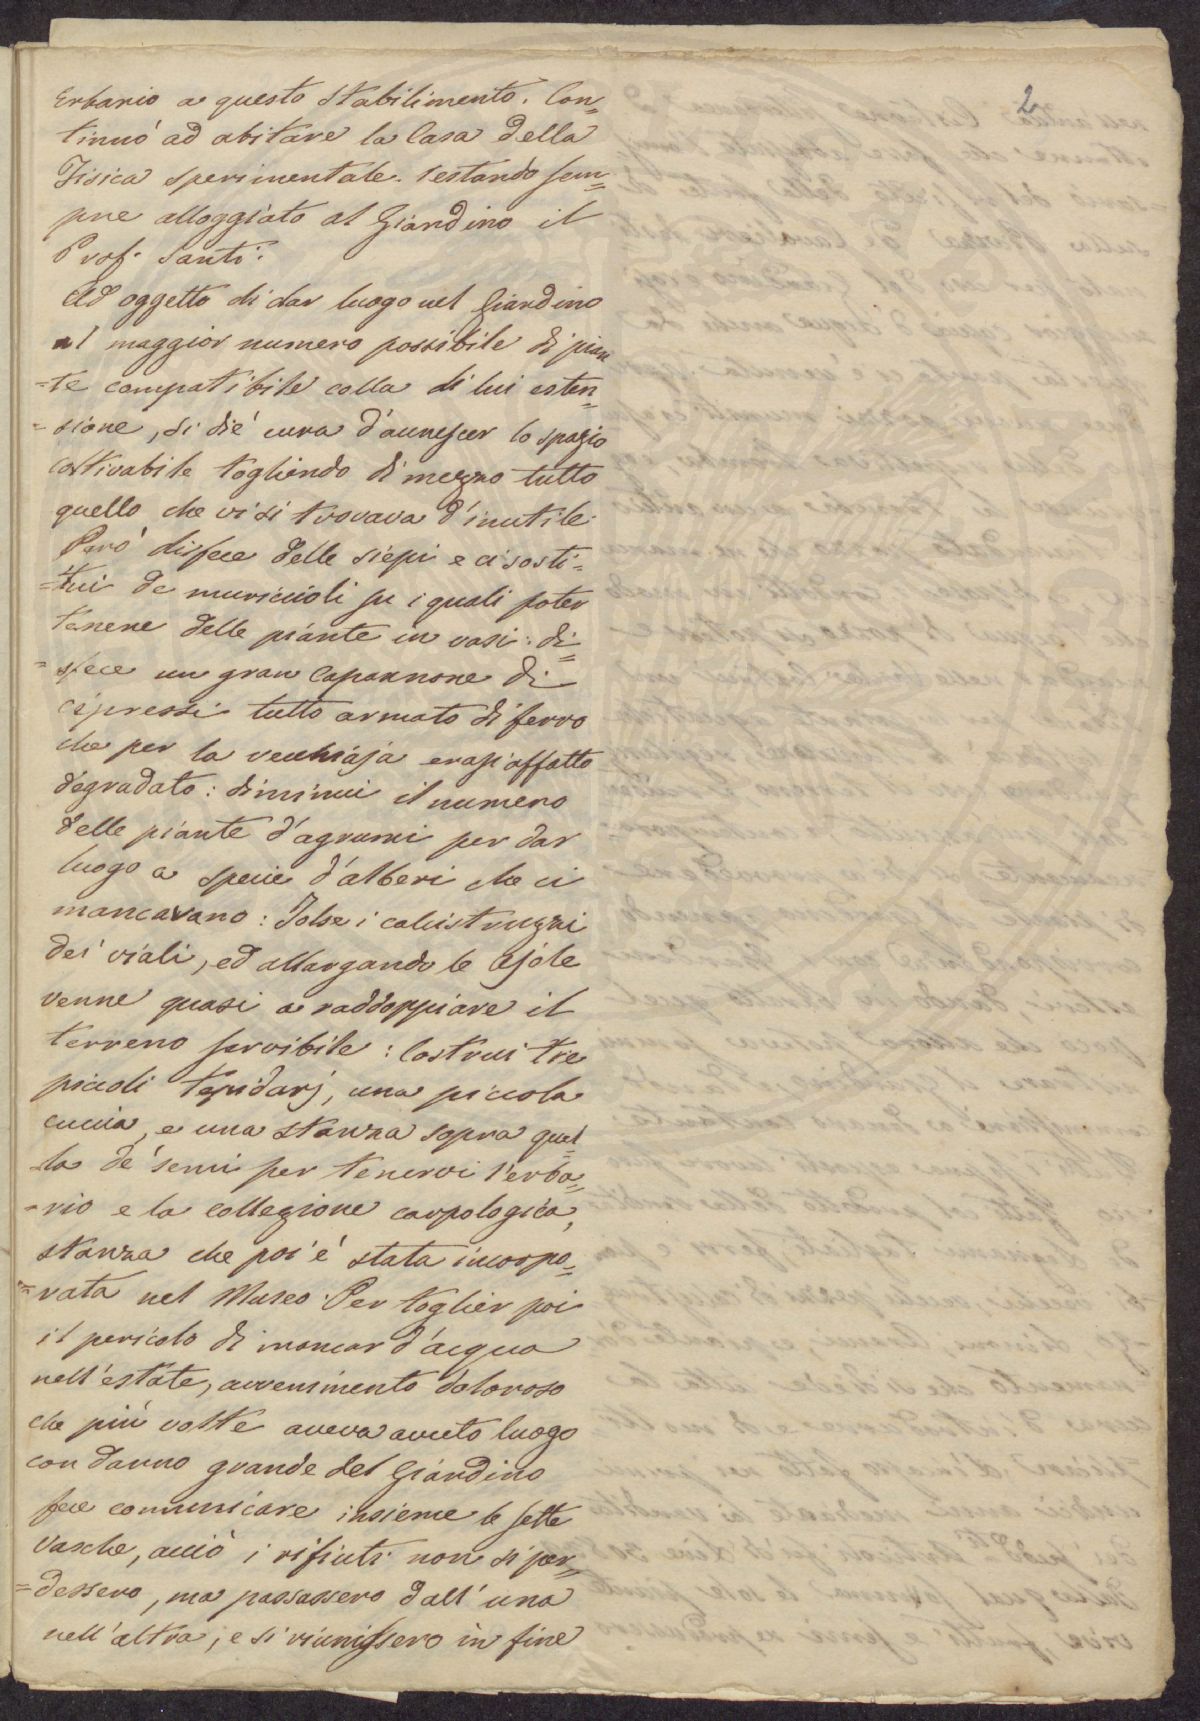 2
Erbario a questo Stabilimento. Con=
tinuò ad abitare la Casa della
Fisica sperimentale. restando sem=
pre alloggiato al Giardino il
Prof. Santi.
Ad oggetto di dar luogo nel Giardino
al maggior numero possibile di pian
=te compatibile colla di lui esten=
=sione, si diè cura d'accrescer lo spazio
coltivabile togliendo di mezzo tutto
quello che vi si trovava d'inutile.
Però disfece delle siepi e ci sosti=
=tuì de muricciuoli su i quali poter
tenere delle piante in vasi: di=
=sfece un gran Capannone di
cipressi tutto armato di ferro
che per la vecchiaja erasi affatto
degradato: diminuì il numero
delle piante d'agrumi per dar
luogo a specie d'alberi che ci
mancavano: Tolse i calcistruzzi
dei viali, ed allargando le Ajole
venne quasi a raddoppiare il
terreno servibile: Costruì tre
piccoli Tepidarj, una piccola
cuccia, e una stanza sopra quel=
la de' semi per tenervi l'erba=
=rio e la collezione carpologica,
stanza che poi è stata incorpo=
=rata nel Museo. Per toglier poi
il pericolo di mancar d'acqua
nell'estate, avvenimento doloroso
che più volte aveva avuto luogo
con danno grande del Giardino
fece comunicare insieme le sette
Vasche, acciò i rifiuti non si per=
=dessero, ma passassero dall'una
nell'altra, e si riunissero in fine